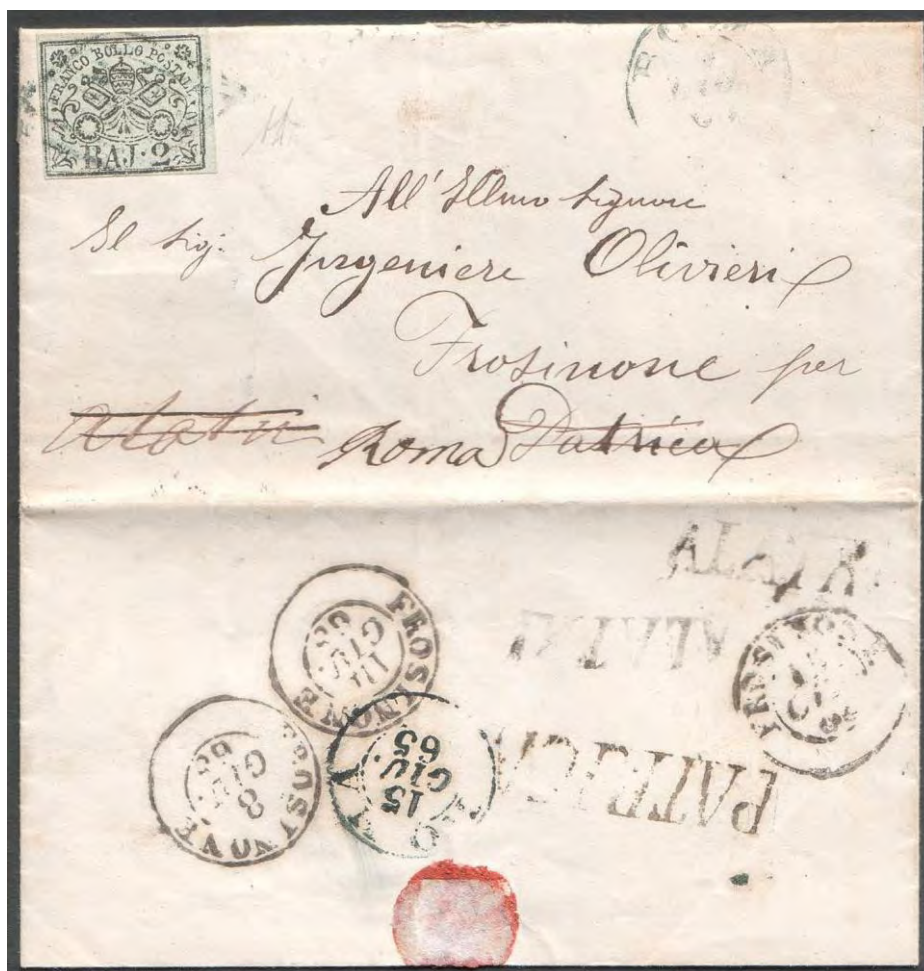 FRANCO BOLLO POSTALE
BAJ·2
All' Illmo Signore
Il Sig. Ingeniere Olivieri
Frosinone per
Alatri Roma Patrica
ALATRI
ALATRI
PATRICA
FROSINONE
GIU.
65
FROSINONE
8
GIU.
65
15
GIU.
65
FROSINONE